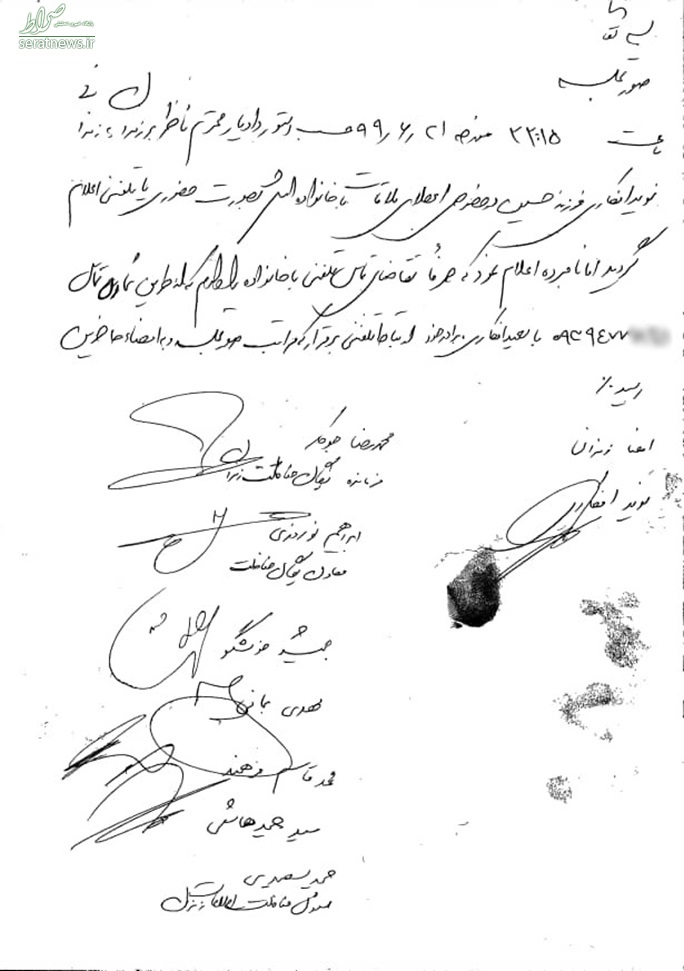 صراط
seratnews.ir
صورتجلسه
ساعت ۲۲:۱۵ مورخه ۹۹/۶/۲۱ حسب دستور دادیار محترم ناظر بر زندان به زندانی
نوید افکاری فرزند حسین در خصوص اعطای ملاقات با خانواده اش بصورت حضوری یا تلفنی اعلام
گردید اما نامبرده اعلام نمود که صرفاً تقاضای تماس تلفنی با خانواده را دارم که از طریق شماره تماس
۰۹۳۹۴۷۷ با سعید افکاری برادر خود ارتباط تلفنی برقرار کرد مراتب صورتجلسه و به امضاء حاضرین
رسید.
امضا زندانی
نوید افکاری
محمدرضا
فرمانده یگان حفاظت
ابراهیم نوروزی
معاون یگان حفاظت
جمشید خوشگو
مهدی
محمد قاسم
سید حمید هاشمی
مسئول حفاظت اطلاعات